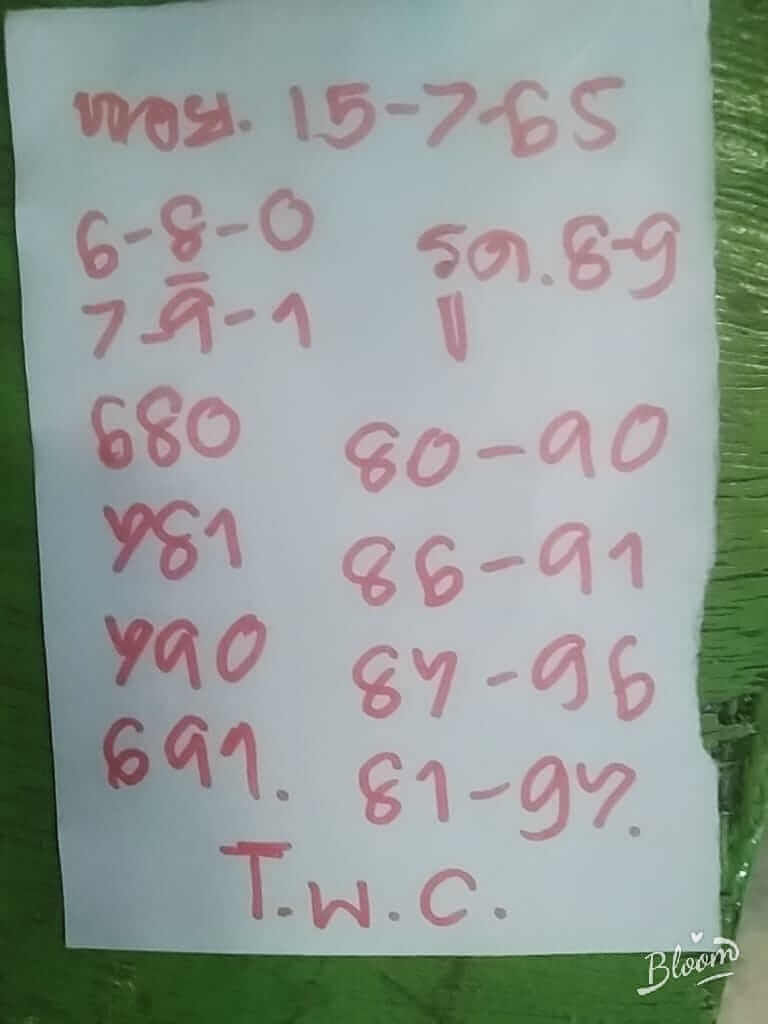 หวย. 15-7-65
6-8-0
รูด. 8-9
7-9-1
680
80-90
781
86-91
790
87-96
691.
81-97.
T.W.C.
Bloom